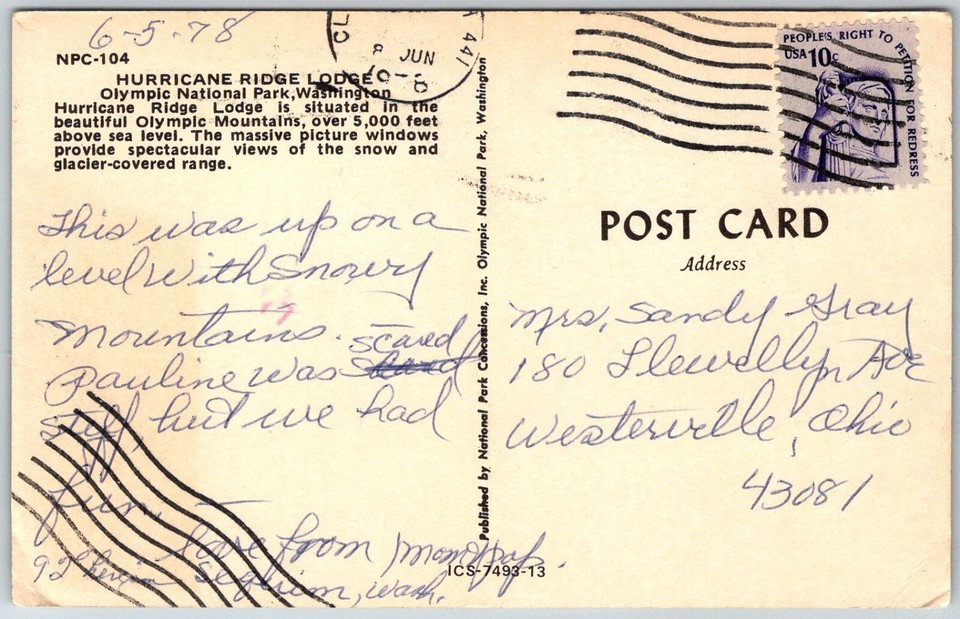 6-5-78
NPC-104
HURRICANE RIDGE LODGE
Olympic National Park, Washington
Hurricane Ridge Lodge is situated in the
beautiful Olympic Mountains, over 5,000 feet
above sea level. The massive picture windows
provide spectacular views of the snow and
glacier-covered range.
This was up on a
level with Snowy
Mountains. scared
Pauline was
Stiff, but we had
fun, -
love from Mom & Pap.
92° herein Sequim, Wash.
Published by National Park Concessions, Inc. Olympic National Park, Washington
ICS-7493-13
CL
JUN
441
PEOPLE'S RIGHT TO PETITION FOR REDRESS
USA 10c
POST CARD
Address
Mrs. Sandy Gray
180 Llewellyn Ave
Westerville, Ohio
43081